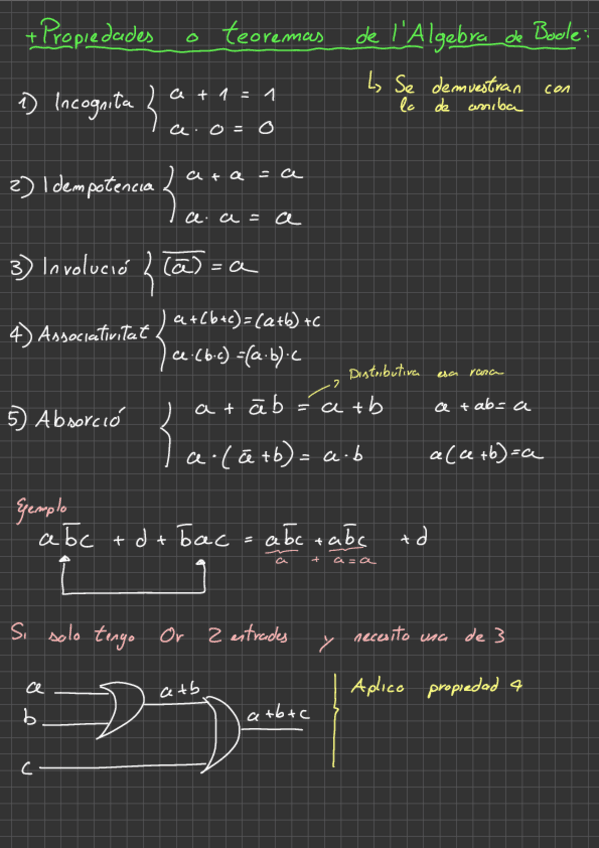 + Propiedades o teoremas de l'Algebra de Boole:
↳ Se demuestran con
lo de arriba
1) Incognita { a + 1 = 1
a · 0 = 0
2) Idempotencia { a + a = a
a · a = a
3) Involució { \overline{(\overline{a})} = a
4) Associativitat { a+(b+c)=(a+b)+c
a·(b·c)=(a·b)·c
→ Distributiva esa rara
5) Absorció { a + \overline{a}b = a + b a + ab = a
a · (\overline{a} + b) = a · b a(a+b)=a
Ejemplo
a\overline{b}c + d + \overline{b}ac = a\overline{b}c + a\overline{b}c + d
a + a = a
Si solo tengo Or 2 entrades y necesito una de 3
a
a+b
b
a+b+c
c
Aplico propiedad 4